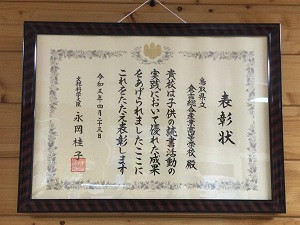 表彰状
鳥取県立
倉吉総合産業高等学校 殿
貴校は子供の読書活動の
実践において優れた成果
をあげられましたここに
これをたたえ表彰します
令和五年四月二十三日
文部科学大臣 永岡桂子